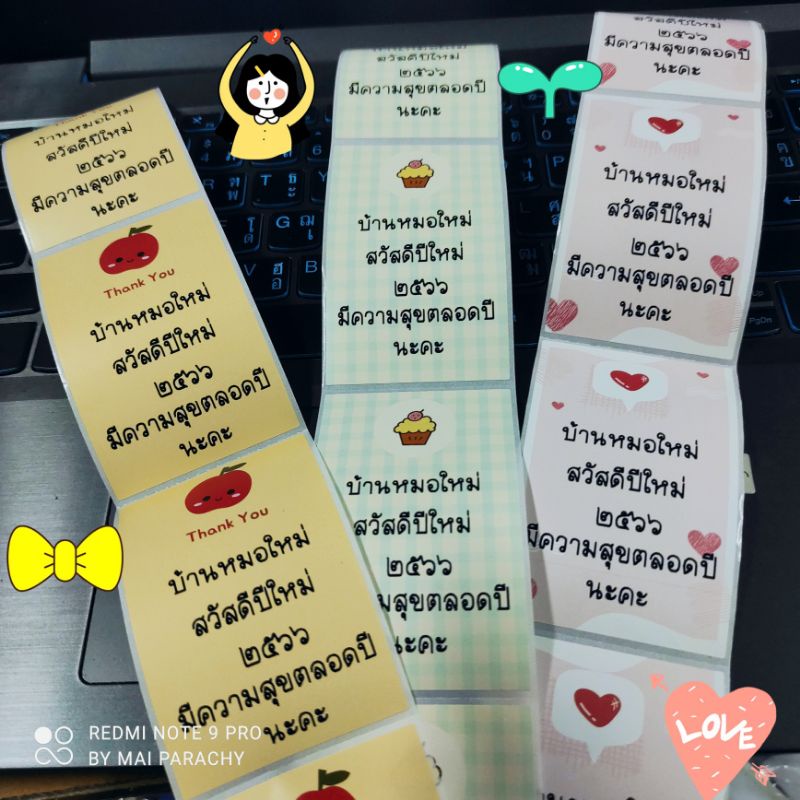 บ้านหมอใหม่
สวัสดีปีใหม่
๒๕๖๖
มีความสุขตลอดปี
นะคะ
Thank You
บ้านหมอใหม่
สวัสดีปีใหม่
๒๕๖๖
มีความสุขตลอดปี
นะคะ
Thank You
บ้านหมอใหม่
สวัสดีปีใหม่
๒๕๖๖
มีความสุขตลอดปี
นะคะ
สวัสดีปีใหม่
๒๕๖๖
มีความสุขตลอดปี
นะคะ
บ้านหมอใหม่
สวัสดีปีใหม่
๒๕๖๖
มีความสุขตลอดปี
นะคะ
บ้านหมอใหม่
สวัสดีปีใหม่
๒๕๖๖
มสุขตลอดปี
นะคะ
สวัสดีปีใหม่
๒๕๖๖
มีความสุขตลอดปี
นะคะ
บ้านหมอใหม่
สวัสดีปีใหม่
๒๕๖๖
มีความสุขตลอดปี
นะคะ
บ้านหมอใหม่
สวัสดีปีใหม่
๒๕๖๖
มีความสุขตลอดปี
นะคะ
LOVE
REDMI NOTE 9 PRO
BY MAI PARACHY